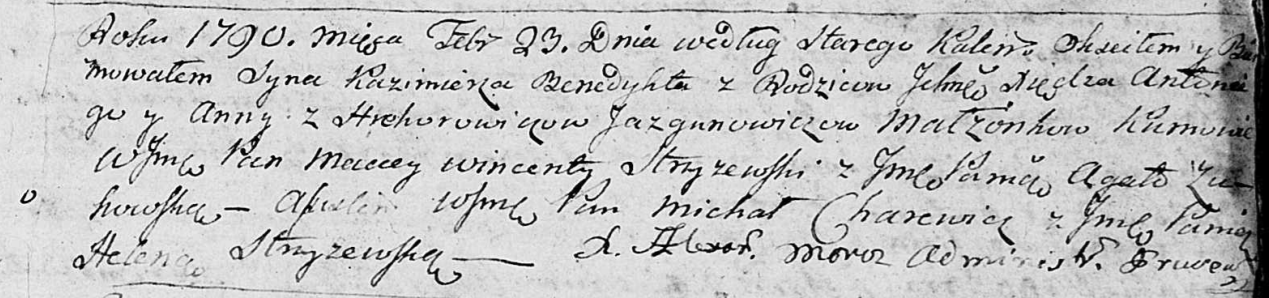 Roku 1790. Mięsa Febr 23. Dnia według Starego Kalen. Okrzciłem y Bier
mowałem Syna Kazimierza Benedykta z Rodzicow Jchmę Xiędza Antonie
go y Anny z Hrehorowiczow Jazgunowiczow Małżonkow Kumowie
WJmę Pan Maciey Wincenty Stryżewski z Jmę Panią Agatą Żu-
kowską — WJmę Pan Michał Charewicz z Jmę Panią
Heleną Stryżewską — X. Alexan. Moroz Administr.